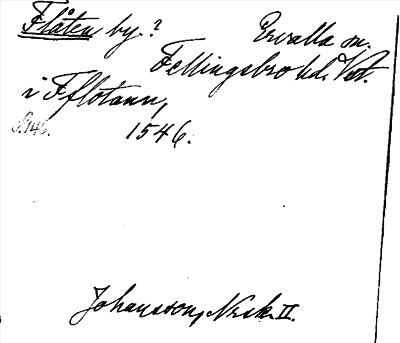 Flåten by.? Ervalla sn.
Fellingsbro hd. Vst.
i Fflotann,
S. 146. 1546.
Johansson, Nrsk. II.